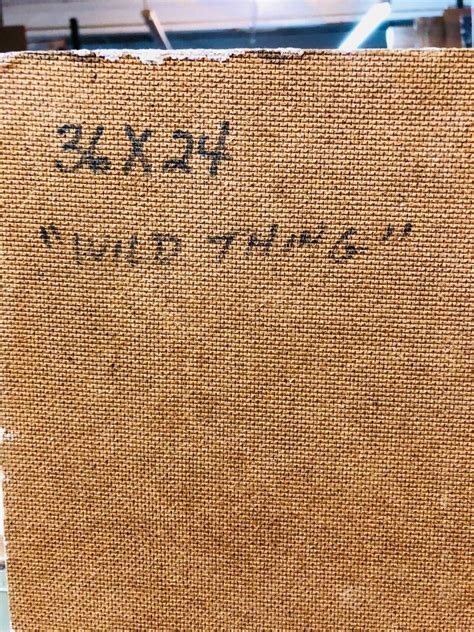 36 X 24
"WILD THING"